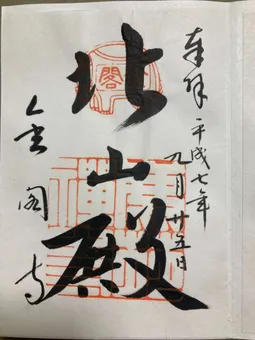 奉拝
平成七年
九月廿五日
北山殿
金閣寺